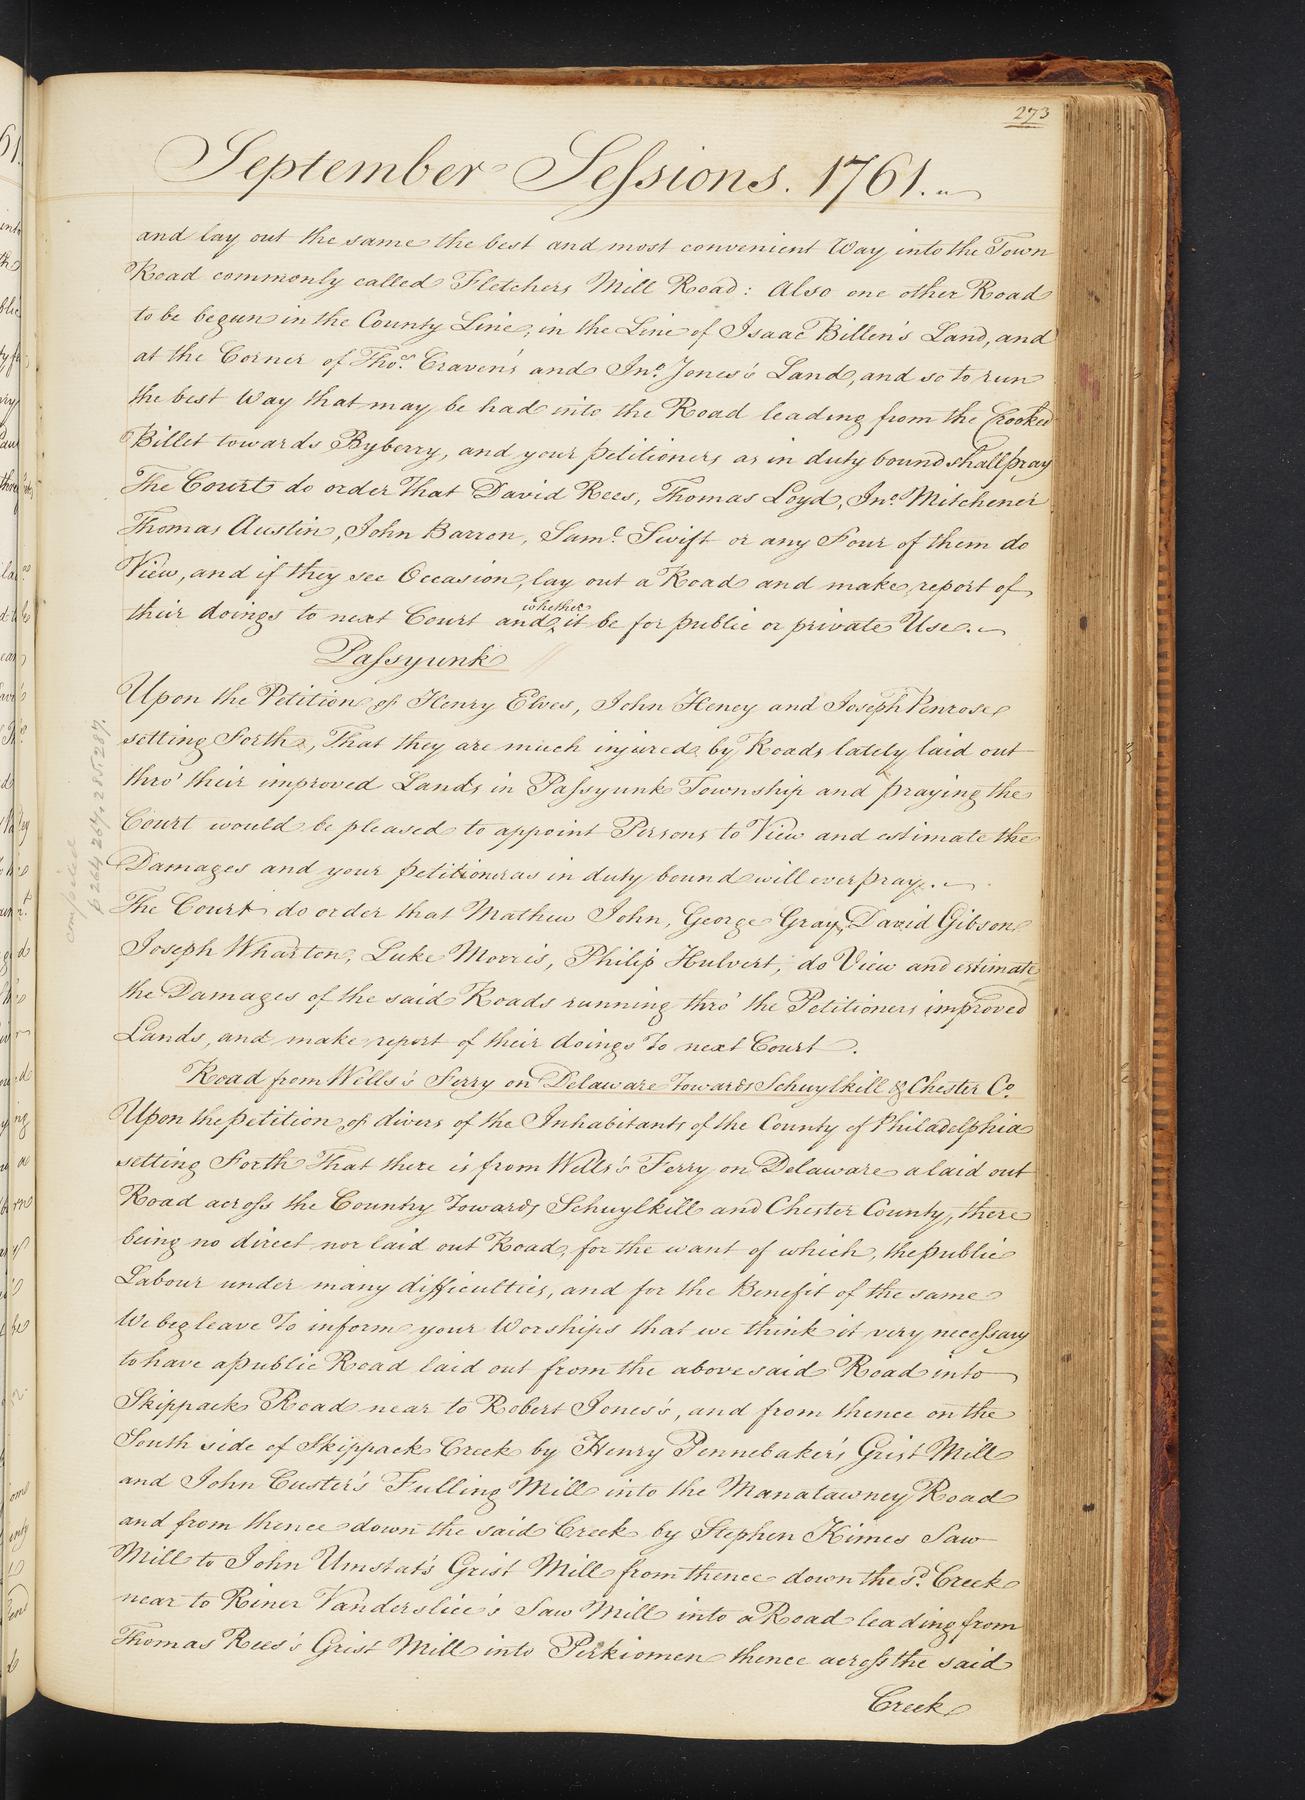 273
September Sessions. 1761.
and lay out the same the best and most convenient Way into the Town
Road commonly called Fletchers Mill Road: Also one other Road
to be begun in the County Line, in the Line of Isaac Billen's Land, and
at the Corner of Thos. Craven's and Jno. Jones's Land, and so to run
the best Way that may be had into the Road leading from the Crooked
Billet towards Byberry, and your petitioners as in duty bound shall pray
The Court do order That David Rees, Thomas Loyd, Jno. Mitchener
Thomas Austin, John Barron, Saml. Swift or any Four of them do
View, and if they see Occasion, lay out a Road and make report of
their doings to next Court and whether it be for public or private Use.
Passyunk
Upon the Petition of Henry Elves, John Heney and Joseph Penrose
setting Forth, That they are much injured by Roads lately laid out
thro' their improved Lands in Passyunk Township and praying the
Court would be pleased to appoint Persons to View and estimate the
Damages and your petitioners as in duty bound will ever pray.
compiled
p 264, 267, 285, 287.
The Court do order that Mathew John, George Gray, David Gibson
Joseph Wharton, Luke Morris, Philip Hulvert, do View and estimate
the Damages of the said Roads running thro' the Petitioners improved
Lands, and make report of their doings To next Court.
Road from Wells's Ferry on Delaware Towards Schuylkill & Chester Co.
Upon the petition of divers of the Inhabitants of the County of Philadelphia
setting Forth That there is from Wells's Ferry on Delaware a laid out
Road across the Country Towards Schuylkill and Chester County, there
being no direct nor laid out Road, for the want of which, the public
Labour under many difficulties, and for the Benefit of the same
We beg leave To inform your Worships that we think it very necessary
to have a public Road laid out from the above said Road into
Skippack Road near to Robert Jones's, and from thence on the
South side of Skippack Creek by Henry Pennebaker's Grist Mill
and John Custer's Fulling Mill into the Manatawney Road
and from thence down the said Creek by Stephen Kimes Saw
Mill to John Umstat's Grist Mill from thence down the sd. Creek
near to Riner Vanderslice's Saw Mill into a Road leading from
Thomas Rees's Grist Mill into Perkiomen thence across the said
Creek